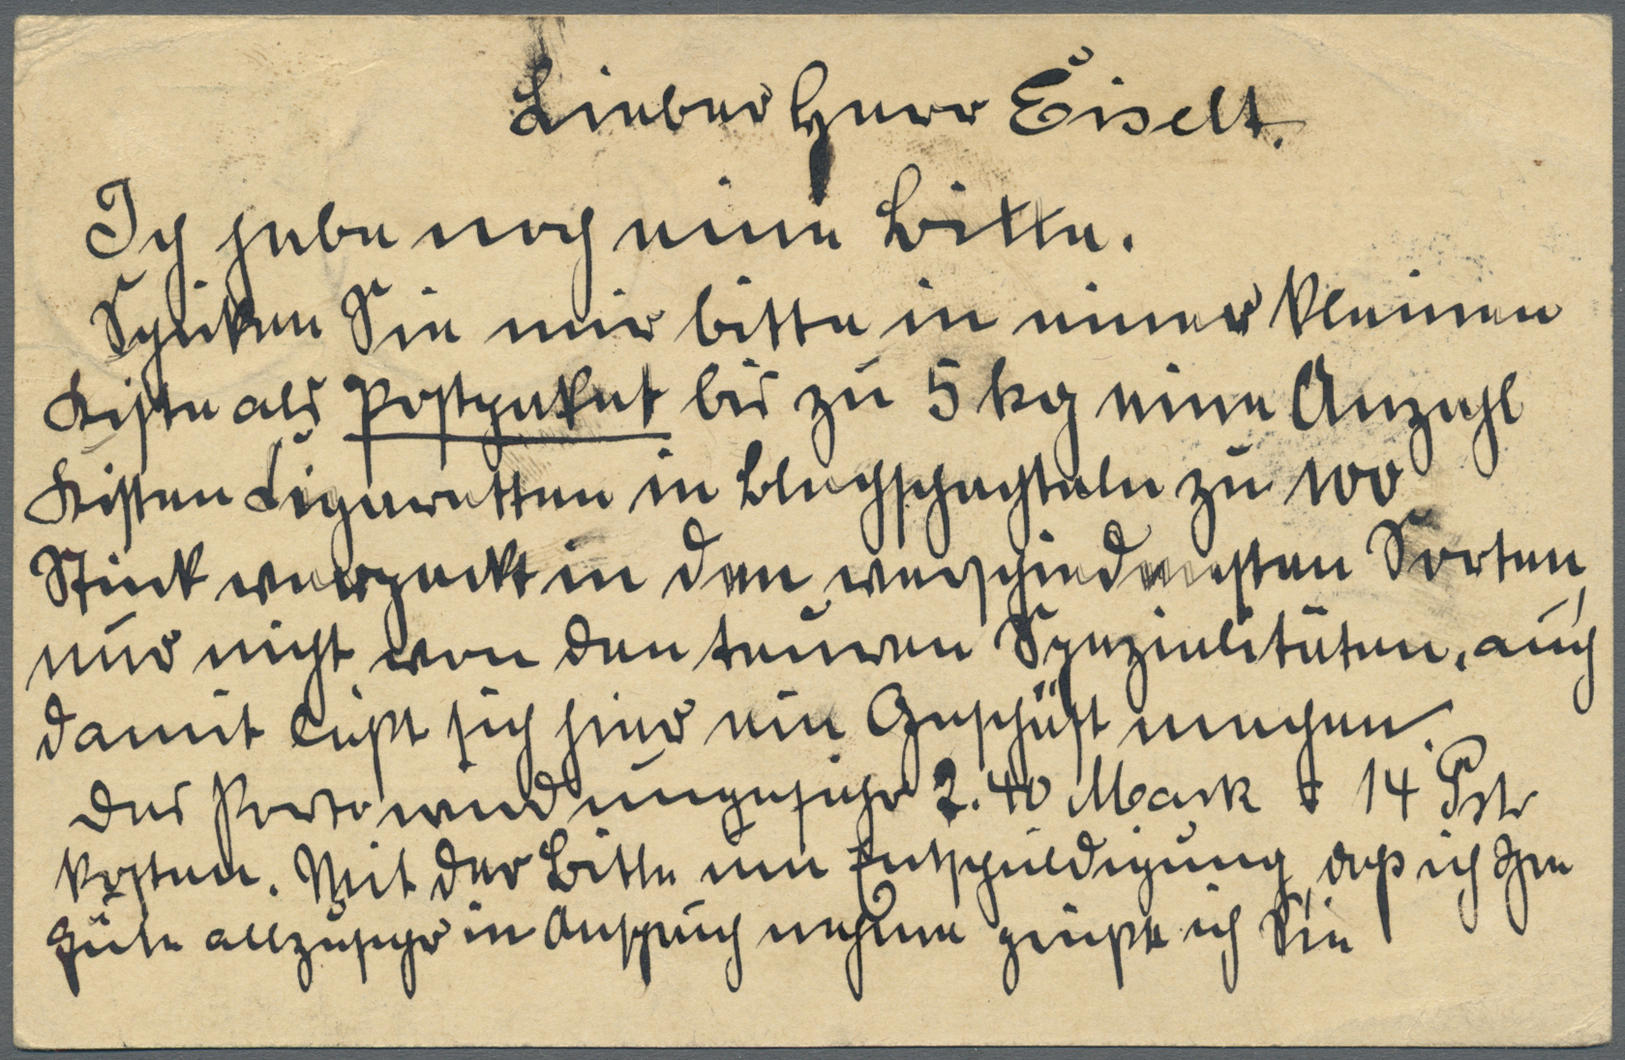 Lieber Herr Eiselt.
Ich habe noch eine Bitte.
Schicken Sie mir bitte in einer kleinen
Kiste als Postpaket bis zu 5 kg eine Anzahl
Kisten Zigaretten in Blechschachteln zu 100
Stück verpackt in den verschiedensten Sorten,
nur nicht von den teuren Spezialitäten, auch
damit läßt sich hier ein Geschäft machen.
Das Porto wird ungefähr 2.40 Mark = 14 Pstr
kosten. Mit der Bitte um Entschuldigung, daß ich Ihre
Güte allzusehr in Anspruch nehme grüße ich Sie